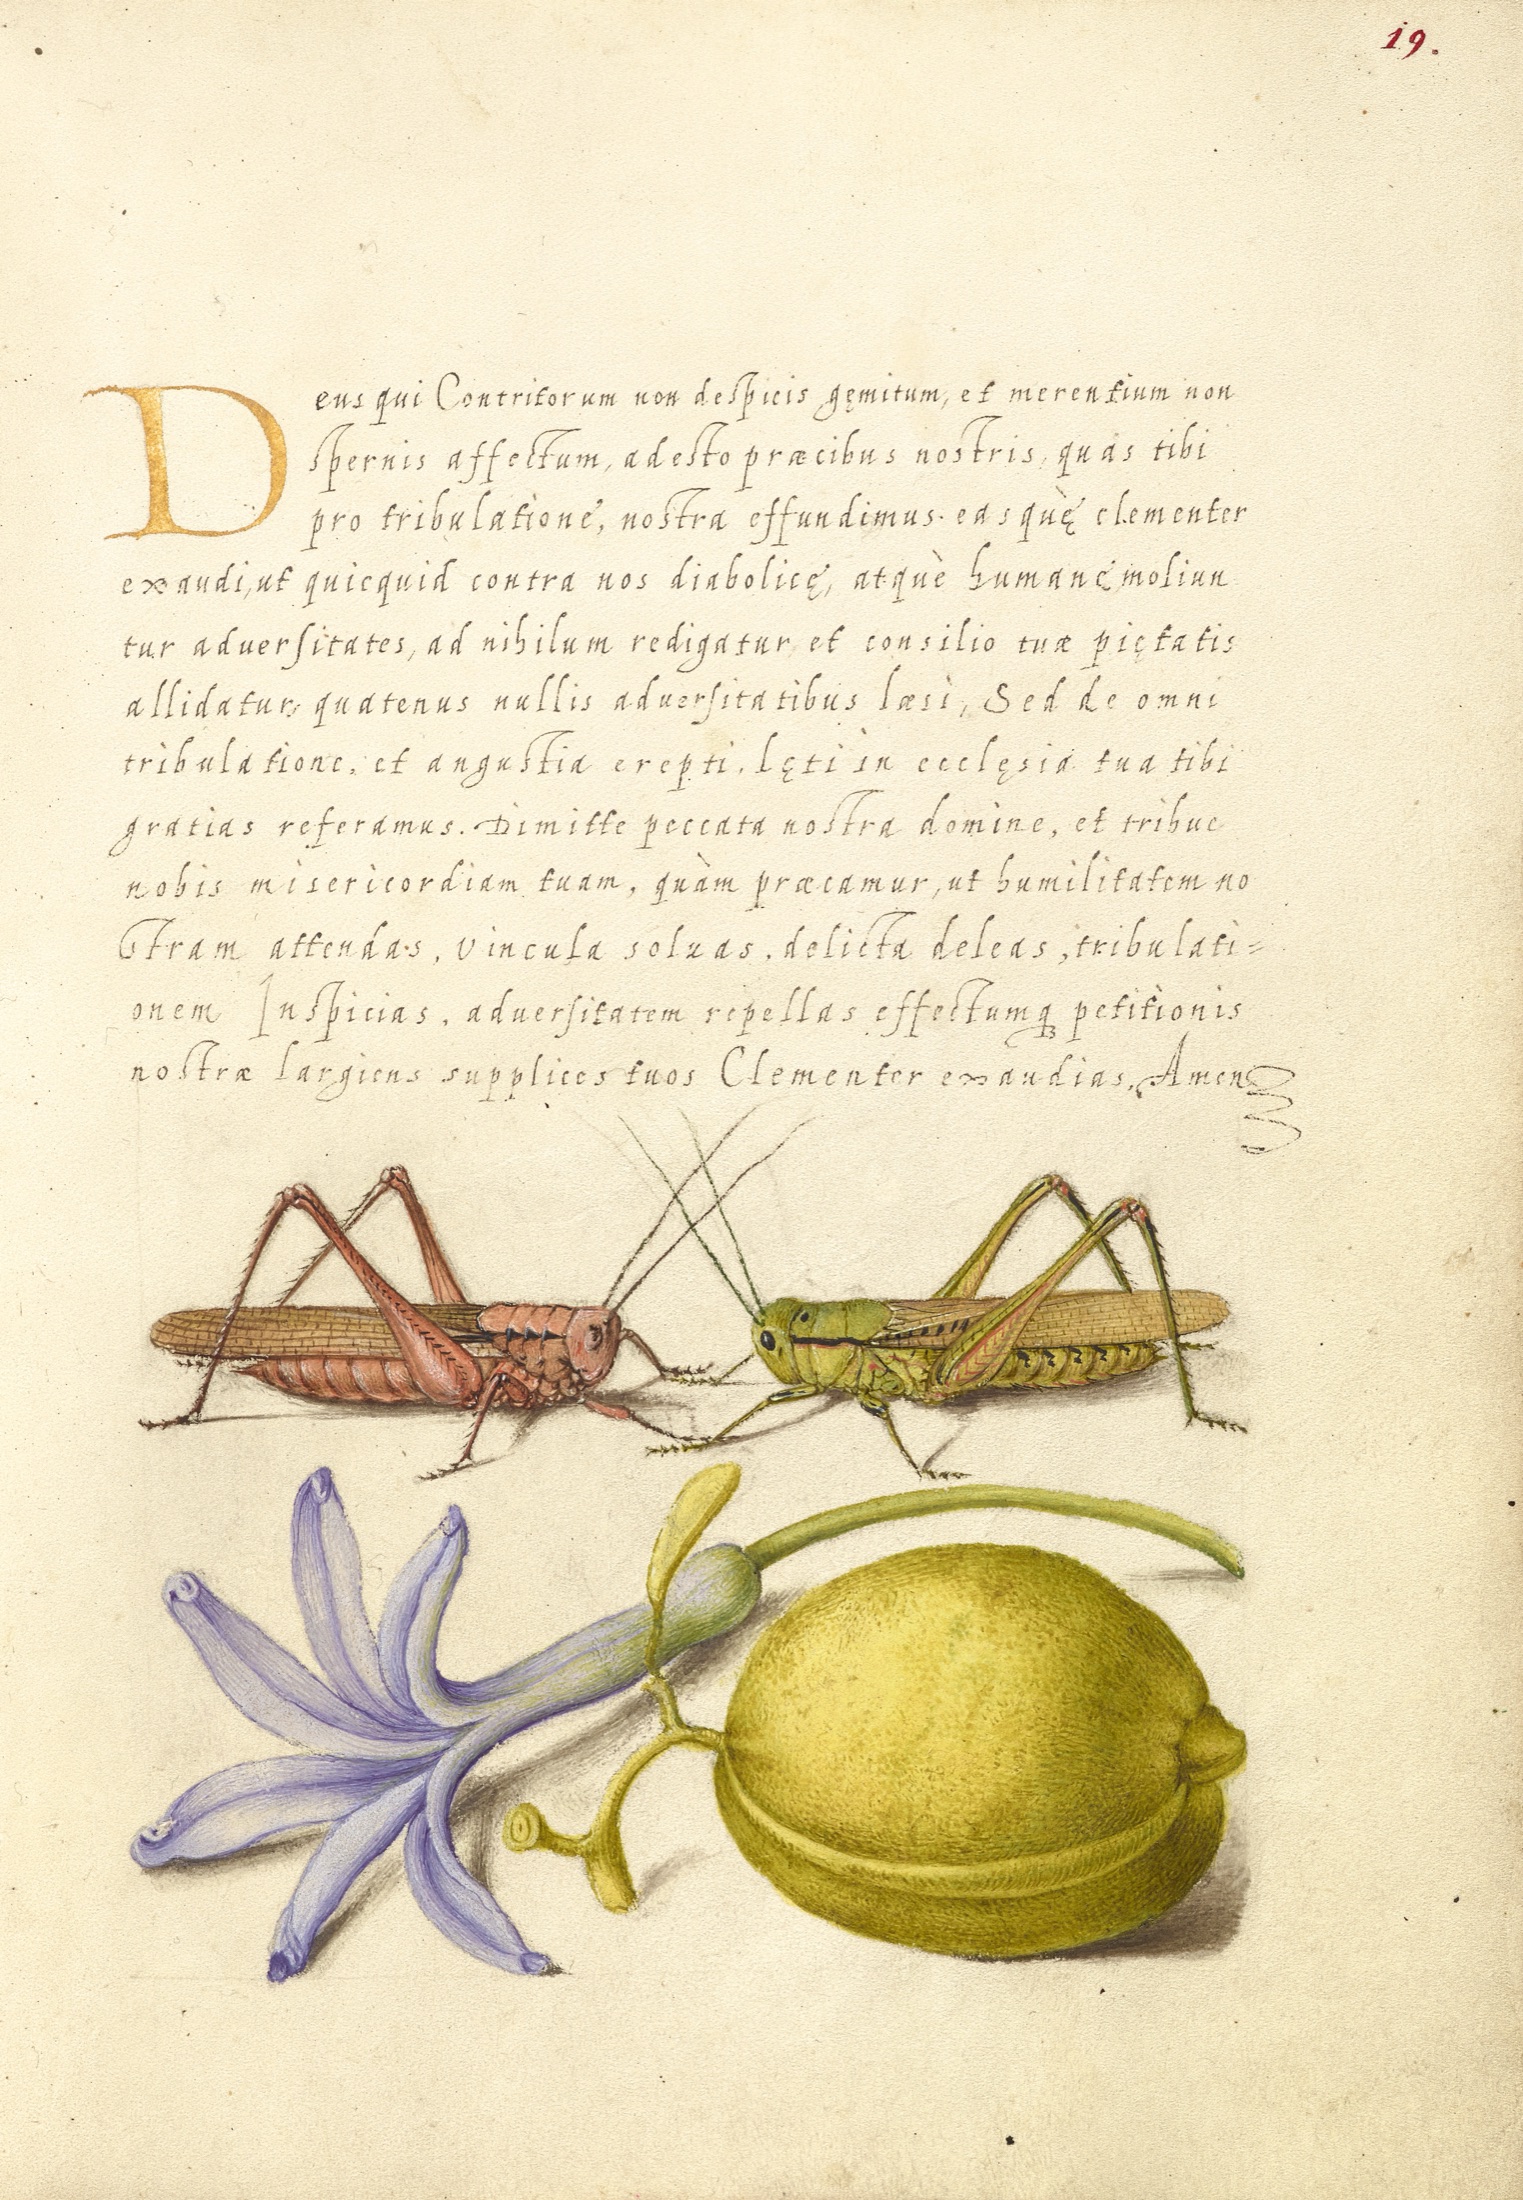 19.
Deus qui Contritorum non despicis gęmitum, et merentium non
spernis affectum, adesto præcibus nostris, quas tibi
pro tribulatione, nostra effundimus. easquè clementer
exaudi, ut quicquid contra nos diabolicę, atquè humanę moliun
tur aduersitates, ad nihilum redigatur et consilio tuæ piętatis
allidatur, quatenus nullis aduersitatibus læsi, Sed de omni
tribulatione, et angustia erepti, lęti in ecclęsia tua tibi
gratias referamus. Dimitte peccata nostra domine, et tribue
nobis misericordiam tuam, quàm præcamur, ut humilitatem no
stram attendas, vincula soluas, delicta deleas, tribulati=
onem Inspicias, aduersitatem repellas effectumq petitionis
nostræ largiens supplices tuos Clementer exaudias. Amen